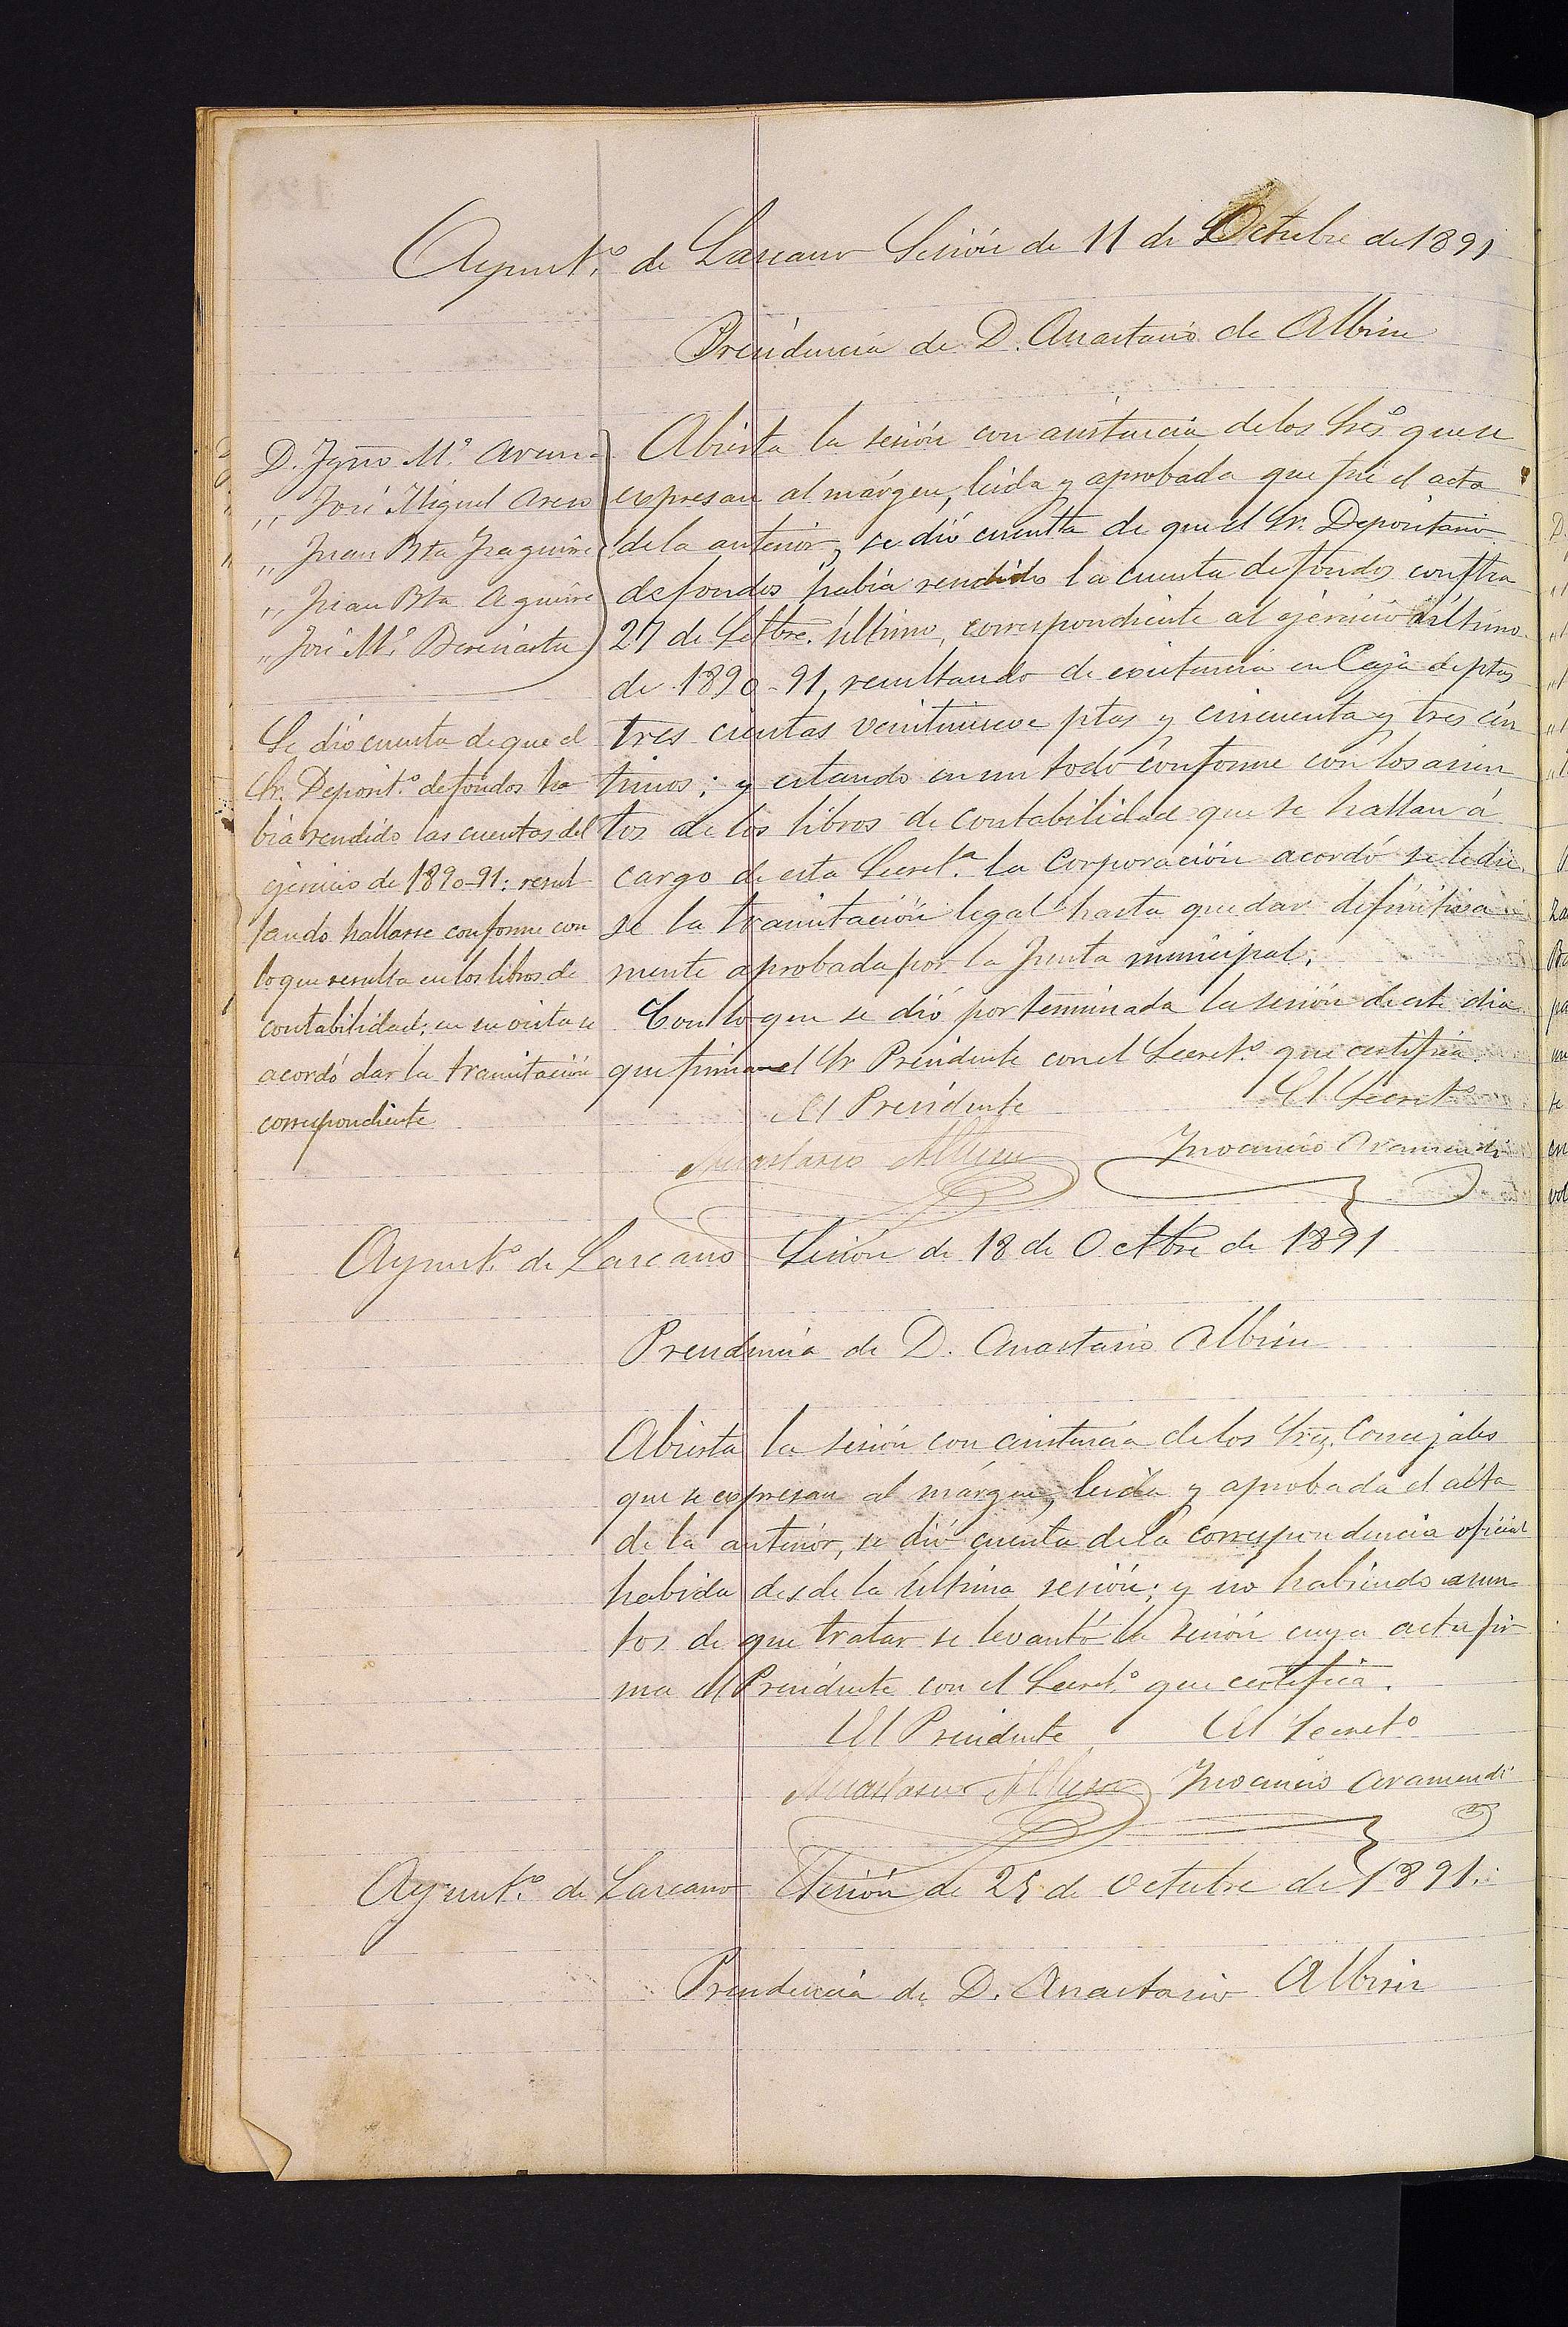 Ayunt.º de Lascano Sesión de 11 de Octubre de 1891
Presidencia de D. Anastasio de Albisu
D. Ygnº M.ª
,, José Miguel
,, Juan Bta Yzaguirre
,, Juan Bta Aguirre
,, José M.ª
Se dió cuenta de que el
Sr. Deposit.º de fondos ha
bia rendido las cuentas del
ejercicio de 1890-91: resul
tando hallarse conforme con
lo que resulta en los libros de
contabilidad; en su vista se
acordó dar la tramitación
correspondiente
Abierta la sesión con asistencia de los Sres que se
expresan al márgen, leida y aprobada que fué el acta
de la anterior, se dió cuenta de que el Sr. Depositario
de fondos habia rendido la cuenta de fondos con fha
27 de Setbre. último, correspondiente al ejercicio último
de 1890-91, resultando de existencia en Caja de ptas
tres cientas veintinueve ptas y cincuenta y tres cén
timos; y estando en un todo conforme con los asien
tos de los libros de contabilidad que se hallan á
cargo de esta Secret.ª la Corporación acordó se le die
se la tramitación legal hasta quedar definitiva
mente aprobada por la Junta municipal.
Con lo que se dió por terminada la sesión de este dia
que firma el Sr Presidente con el Secret.º que certifica.
El Presidente El Secret.º
Anastasio Albisu Ynocencio Aramendi
Ayunt.º de Lascano Sesión de 18 de Octbre de 1891
Presidencia de D. Anastasio Albisu
Abierta la sesión con asistencia de los Sres. Concejales
que se expresan al márgen, leida y aprobada el acta
de la anterior, se dió cuenta de la correspondencia oficial
habida desde la última sesión; y no habiendo asun
tos de que tratar se levantó la sesión cuya acta fir
ma el Presidente con el Secret.º que certifica.
El Presidente El Secretº
Anastasio Albisu Ynocencio Aramendi
Ayunt.º de Lascano Sesión de 25 de Octubre de 1891.
Presidencia de D. Anastasio Albisu